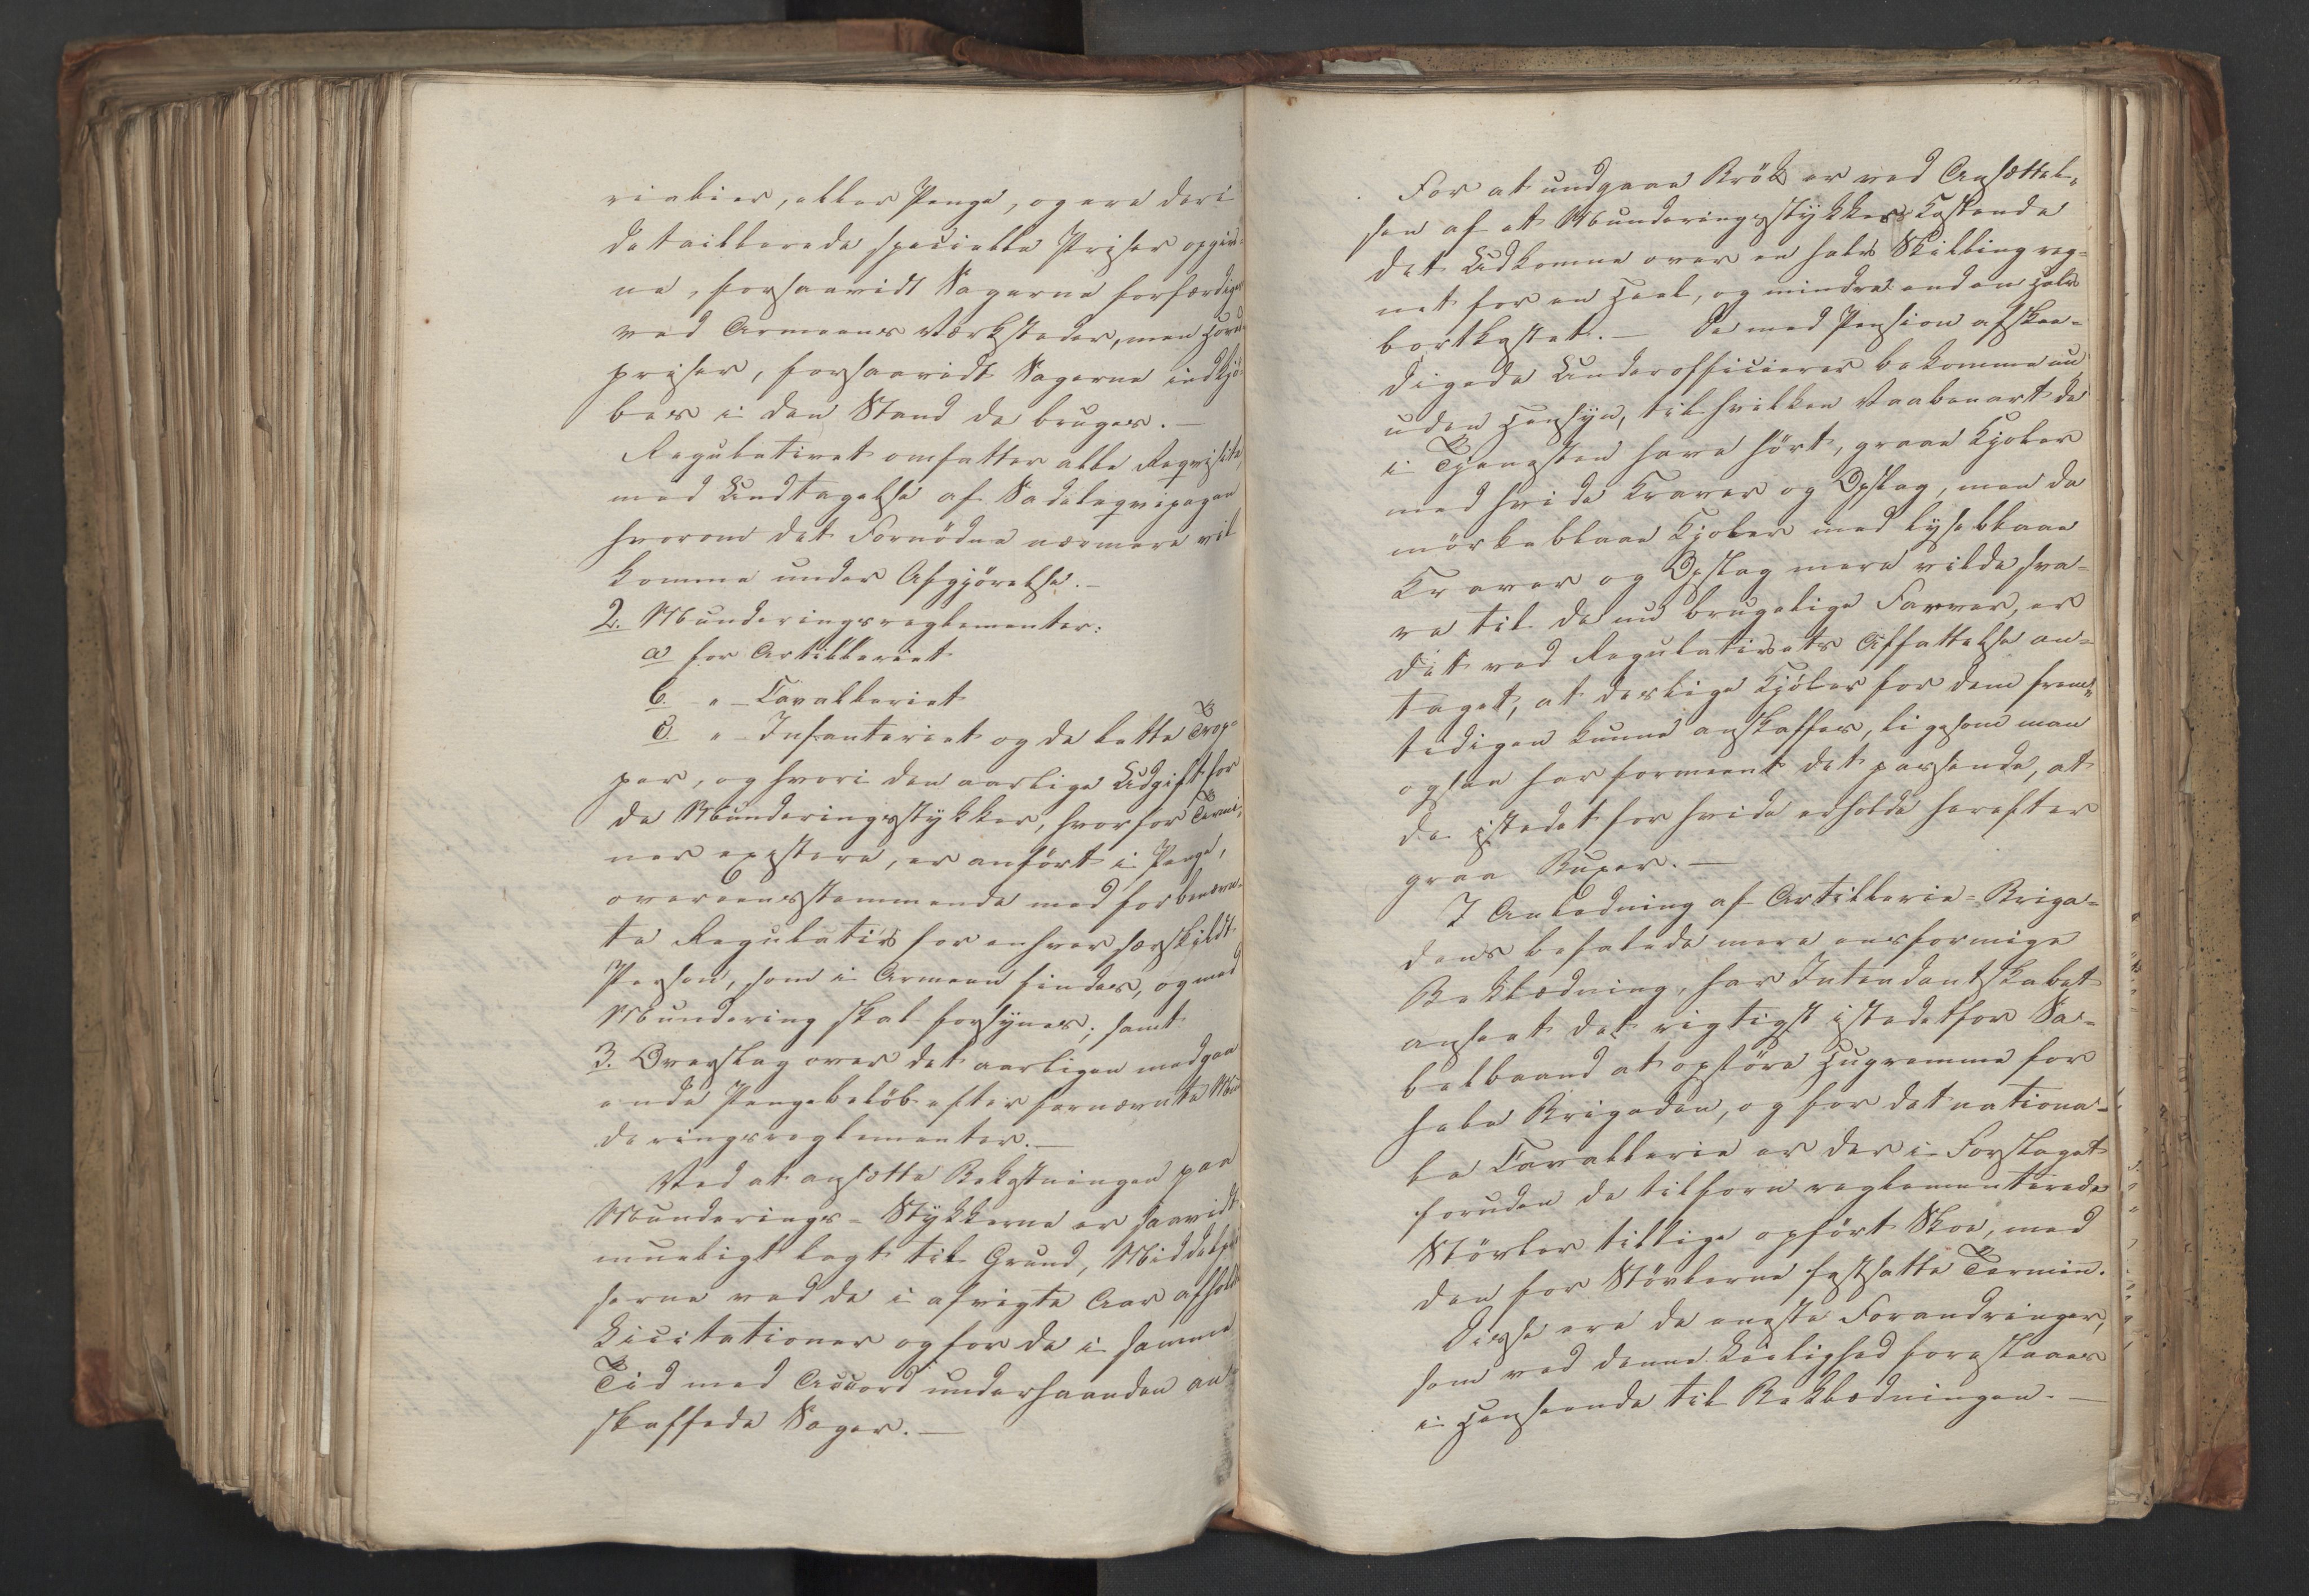 rialier, eller Penge, og ere deri
detaillerede specielle Priser opgiv-
ne, forsaavidt Sagerne forfærdiges
ved Armeens Værksteder, men Hoved-
priser, forsaavidt Sagerne indkjö-
bes i den Stand de bruges.—
Regulativet omfatter alle Reqvisiter,
med Undtagelse af Sadeleqvipagen
hvorom det Fornödne nærmere vil
komme under Afgjörelse.—
2. Munderingsreglementer:
a for Artilleriet
b. " — Cavalleriet
c. " — Infanteriet og de lette Trop-
per, og hvori den aarlige Udgift for
de Munderingsstykker, hvorfor Termi-
ner existere, er anfört i Penge,
overeensstemmende med forbenævn-
te Regulativ for enhver særskildt
Person, som i Armeen findes, og med
Mundering skal forsynes; samt
3. Overslag over det aarligen medgaa-
ende Pengebelöb efter fornævnte Mun-
deringsreglementer.—
Ved at ansætte Bekostningen paa
Munderings-Stykkerne er saavidt
mueligt lagt til Grund, Middelpri-
serne ved de i afvigte Aar afholdte
Licitationer og for de i samme
Tid med Accord underhaanden an-
skaffede Sager.—
For at undgaae Brök er ved Ansættel-
sen af et Munderingsstykkes Kostende
det Udkomne over en halv Skilling reg-
net for en Heel, og mindre end en halv
bortkastet.— De med Pension afskee-
digede Underofficierer bekomme nu,
uden Hensyn, til hvilken Vaabenart de
i Tjenesten have hört, graae Kjoler
med hvide Kraver og Opslag, men da
mörkeblaae Kjoler med lyseblaae
Kraver og Opslag mere vilde sva-
re til de nu brugelige Farver, er
det ved Regulativets Affattelse an-
taget, at deslige Kjoler for dem frem-
tidigen kunne anskaffes, ligesom man
ogsaa har formeent det passende, at
de istedet for hvide erholde herefter
graa Buxer.—
I Anledning af Artillerie-Briga-
dens befalede mere eensformige
Beklædning, har Intendantskabet
anseet det rigtigst istedetfor Sa-
belbaand at opföre Hugremme for
hele Brigaden, og for det nationa-
le Cavallerie er der i Forslaget
foruden de tilforn reglementerede
Stövler tillige opfört Skoe, med
den for Stövlerne fastsatte Termin.
Disse ere de eneste Forandringer,
som ved denne Leilighed forestaaes
i Henseende til Beklædningen.—